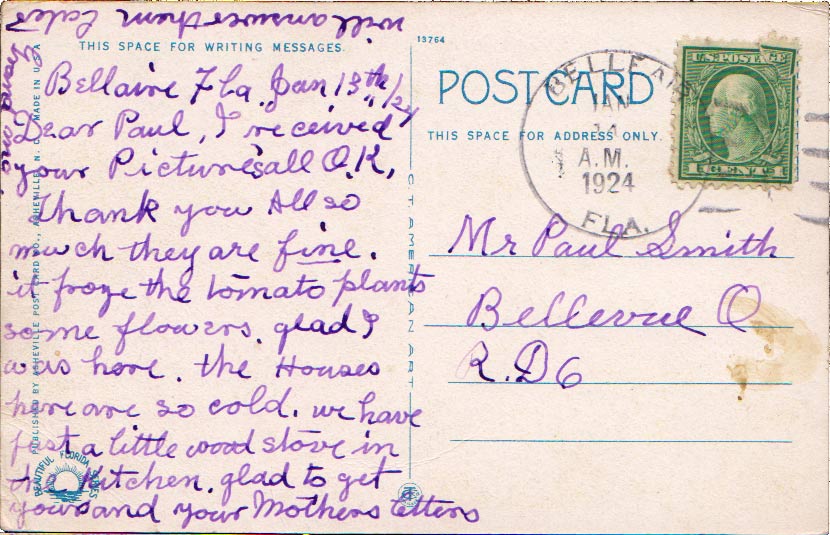 will answer them later
Grand ma.
THIS SPACE FOR WRITING MESSAGES.
Bellaire Fla. Jan 13th/24
Dear Paul, I received
your Pictures all O.K.
Thank you All so
much they are fine.
it froze the tomato plants
some flowers. glad I
was here. the Houses
here are so cold. we have
just a little wood stove in
the Kitchen. glad to get
yours and your Mothers letters
PUBLISHED BY ASHEVILLE POST CARD CO., ASHEVILLE, N. C. MADE IN U.S.A.
BEAUTIFUL FLORIDA SERIES
C. T. AMERICAN ART
13764
POST CARD
THIS SPACE FOR ADDRESS ONLY.
BELLEAIR
JAN
14
A.M.
1924
FLA.
U.S. POSTAGE
1 CENT 1
Mr Paul Smith
Bellevue O
R.D 6